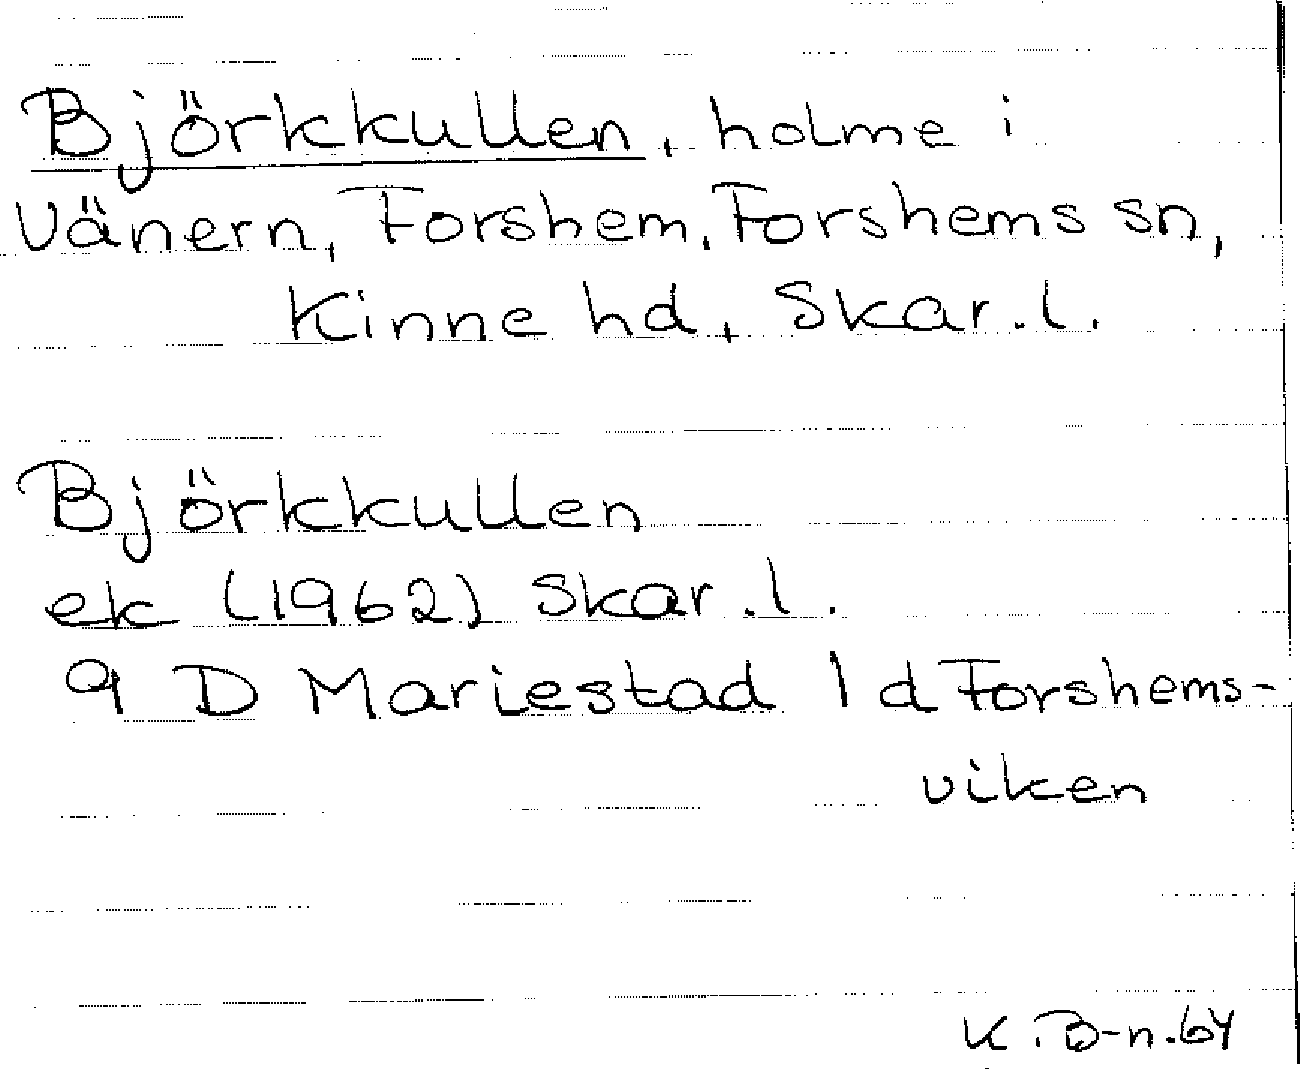 Björkkullen, holme i
Vänern, Forshem, Forshems sn,
Kinne hd, Skar.l.
Björkkullen
ek (1962) Skar.l.
9 D Mariestad 1 d Forshems-
viken
K.B-n.64